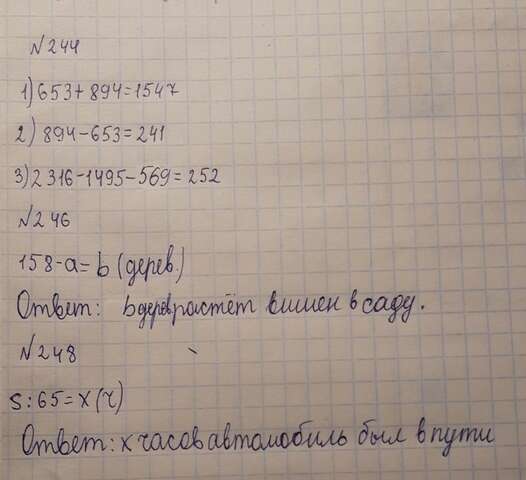 №244
1) 653+894=1547
2) 894-653=241
3) 2316-1495-569=252
№246
158-a=b (дерев.)
Ответ: b дерев растёт вишен в саду.
№248
S:65=x(ч)
Ответ: x часов автомобиль был в пути